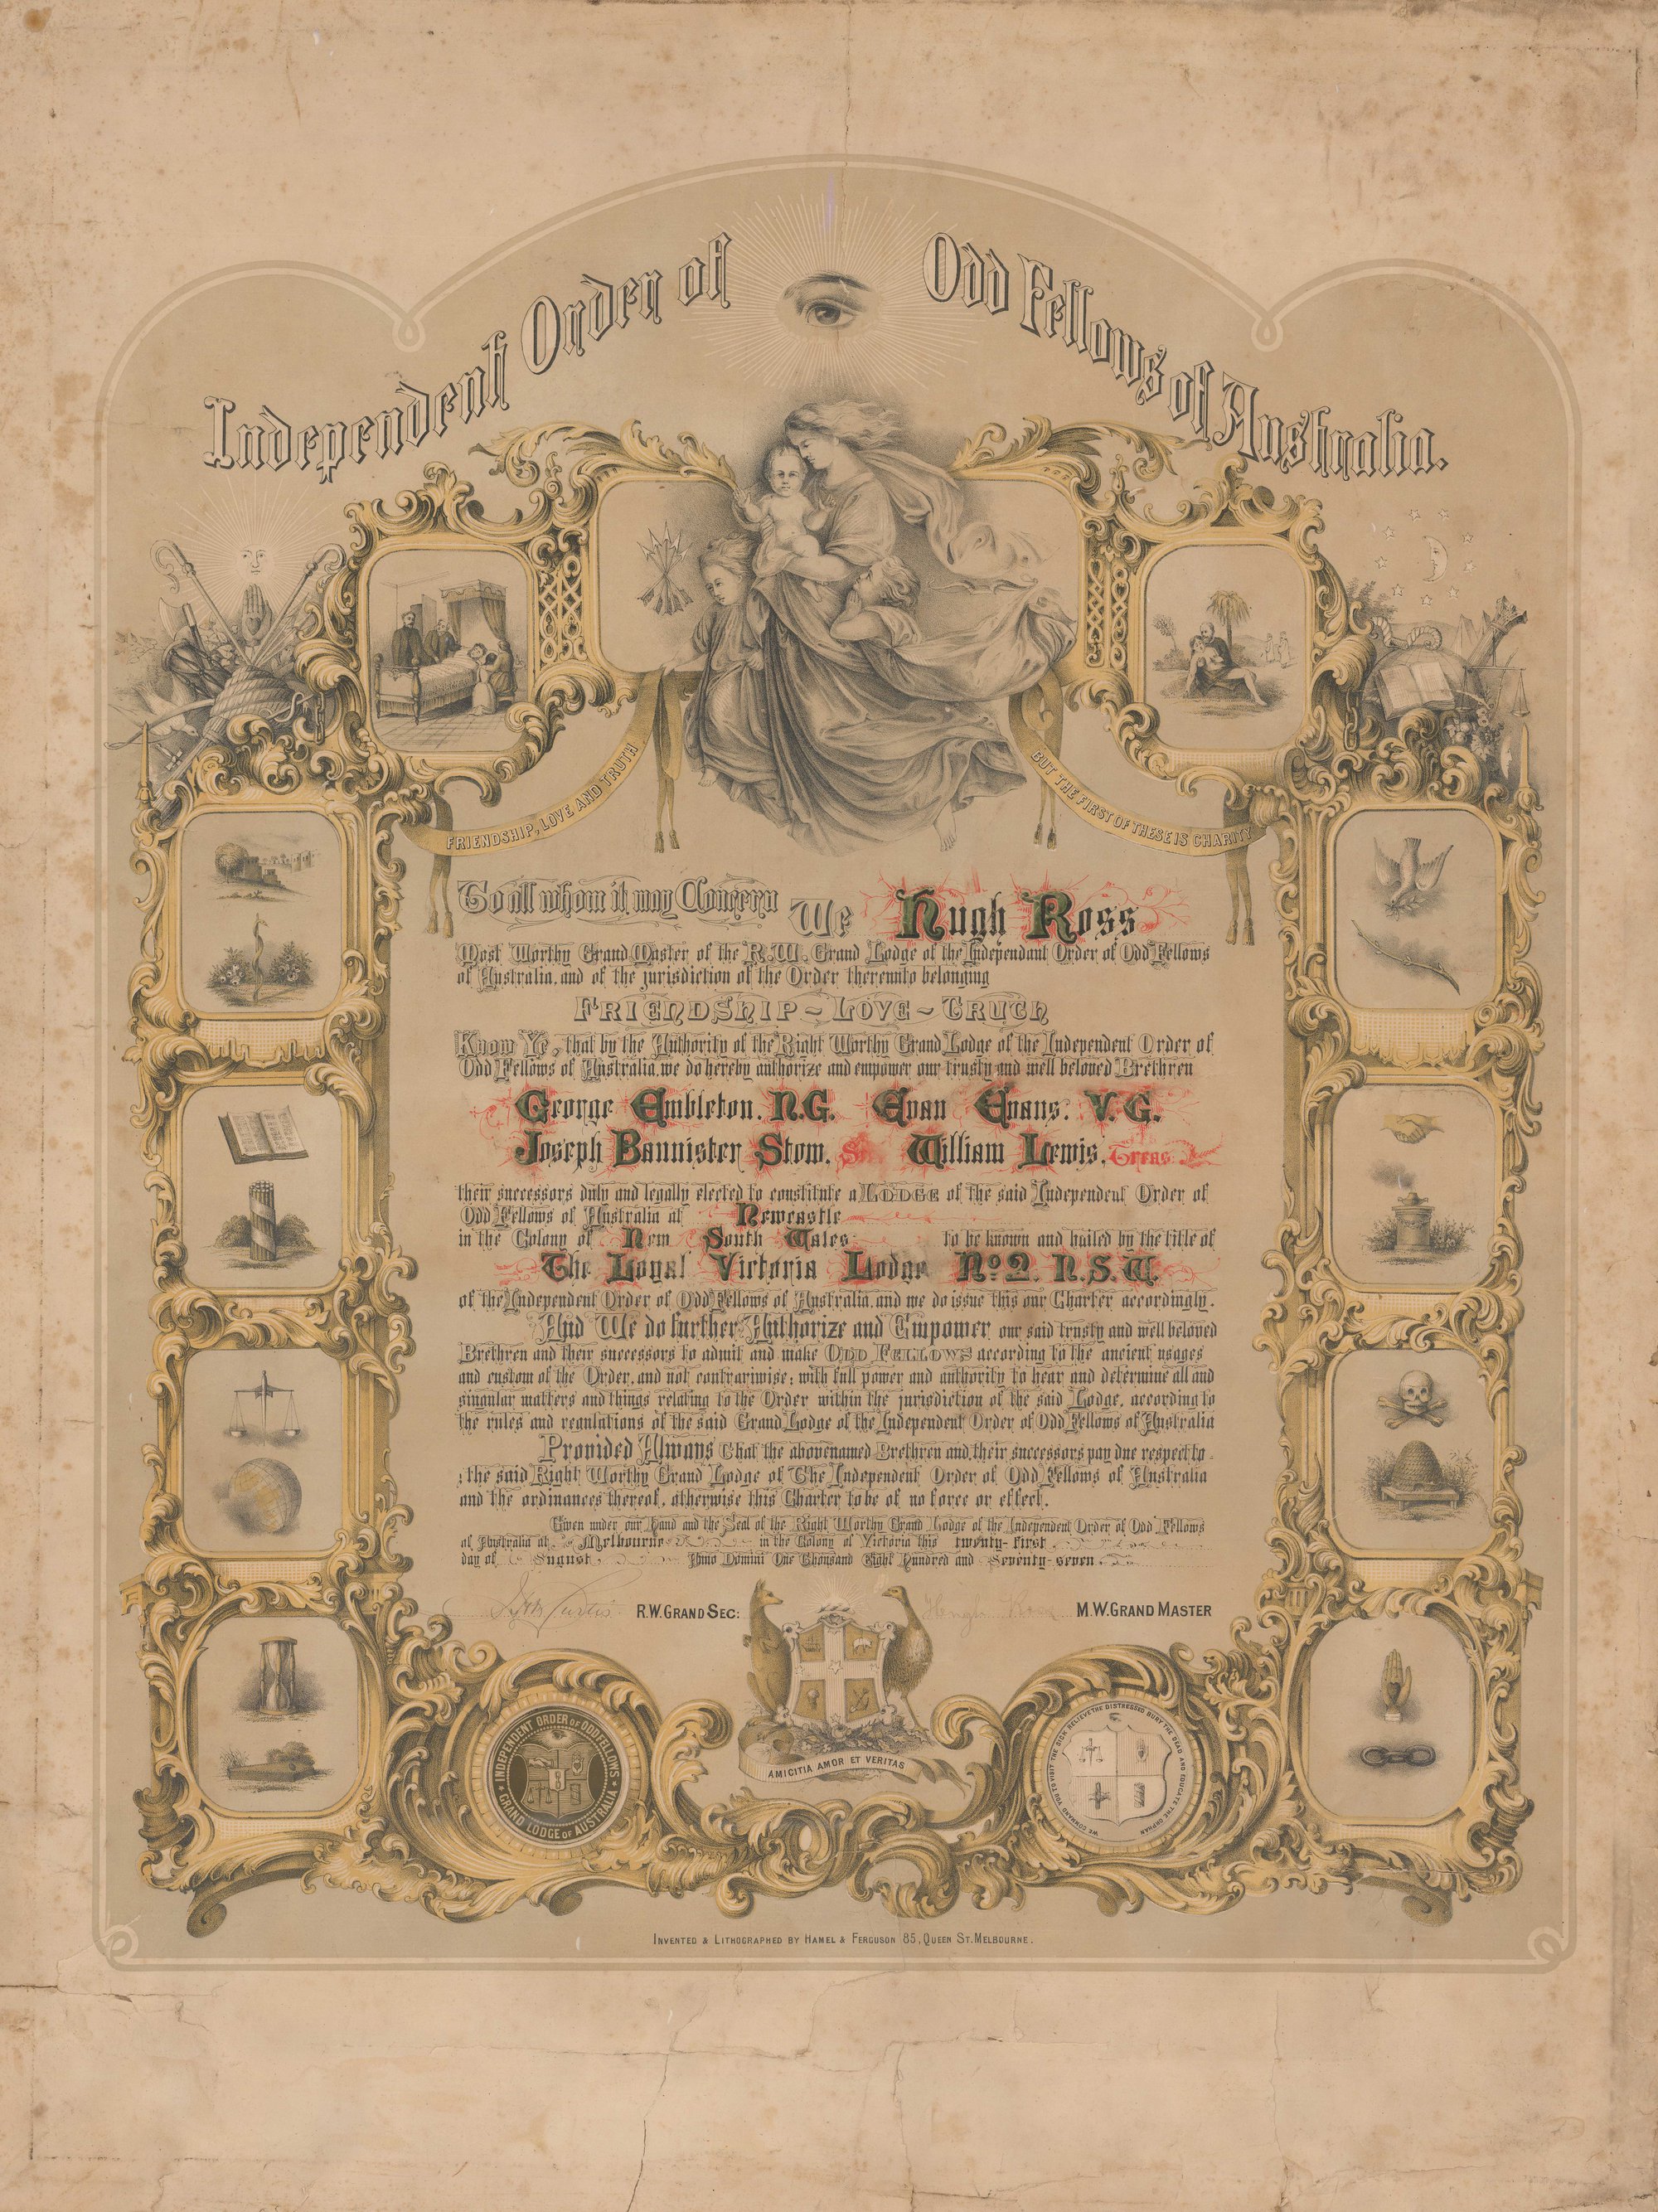 Independent Order of Odd Fellows of Australia.
FRIENDSHIP, LOVE AND TRUTH
BUT THE FIRST OF THESE IS CHARITY
To all whom it may Concern We Hugh Ross
Most Worthy Grand Master of the R.W. Grand Lodge of the Independant Order of Odd Fellows
of Australia, and of the jurisdiction of the Order thereunto belonging
FRIENDSHIP ~ LOVE ~ TRUTH
Know Ye, that by the Authority of the Right Worthy Grand Lodge of the Independent Order of
Odd Fellows of Australia, we do hereby authorize and empower our trusty and well beloved Brethren
George Embleton. N.G. Evan Evans. V.G.
Joseph Bannister Stow. William Lewis. Treas
their successors duly and legally elected to constitute a LODGE of the said Independent Order of
Odd Fellows of Australia at Newcastle
in the Colony of New South Wales to be known and hailed by the title of
The Loyal Victoria Lodge No 2. N.S.W.
of the Independent Order of Odd Fellows of Australia, and we do issue this our Charter accordingly.
And We do further Authorize and Empower our said trusty and well beloved
Brethren and their successors to admit and make ODD FELLOWS according to the ancient usages
and custom of the Order, and not contrariwise; with full power and authority to hear and determine all and
singular matters and things relating to the Order within the jurisdiction of the said Lodge, according to
the rules and regulations of the said Grand Lodge of the Independent Order of Odd Fellows of Australia
Provided Always That the abovenamed Brethren and their successors pay due respect to
the said Right Worthy Grand Lodge of The Independent Order of Odd Fellows of Australia
and the ordinances thereof, otherwise this Charter to be of no force or effect.
Given under our Hand and the Seal of the Right Worthy Grand Lodge of the Independent Order of Odd Fellows
of Australia at Melbourne in the Colony of Victoria this twenty-first
day of August Anno Domini One Thousand Eight Hundred and Seventy-seven.
Curtis R.W. GRAND SEC: M.W. GRAND MASTER
INDEPENDENT ORDER OF ODDFELLOWS
GRAND LODGE OF AUSTRALIA
AMICITIA AMOR ET VERITAS
WE COMMAND YOU TO VISIT THE SICK RELIEVE THE DISTRESSED BURY THE DEAD AND EDUCATE THE ORPHAN
INVENTED & LITHOGRAPHED BY HAMEL & FERGUSON 85, QUEEN ST. MELBOURNE.